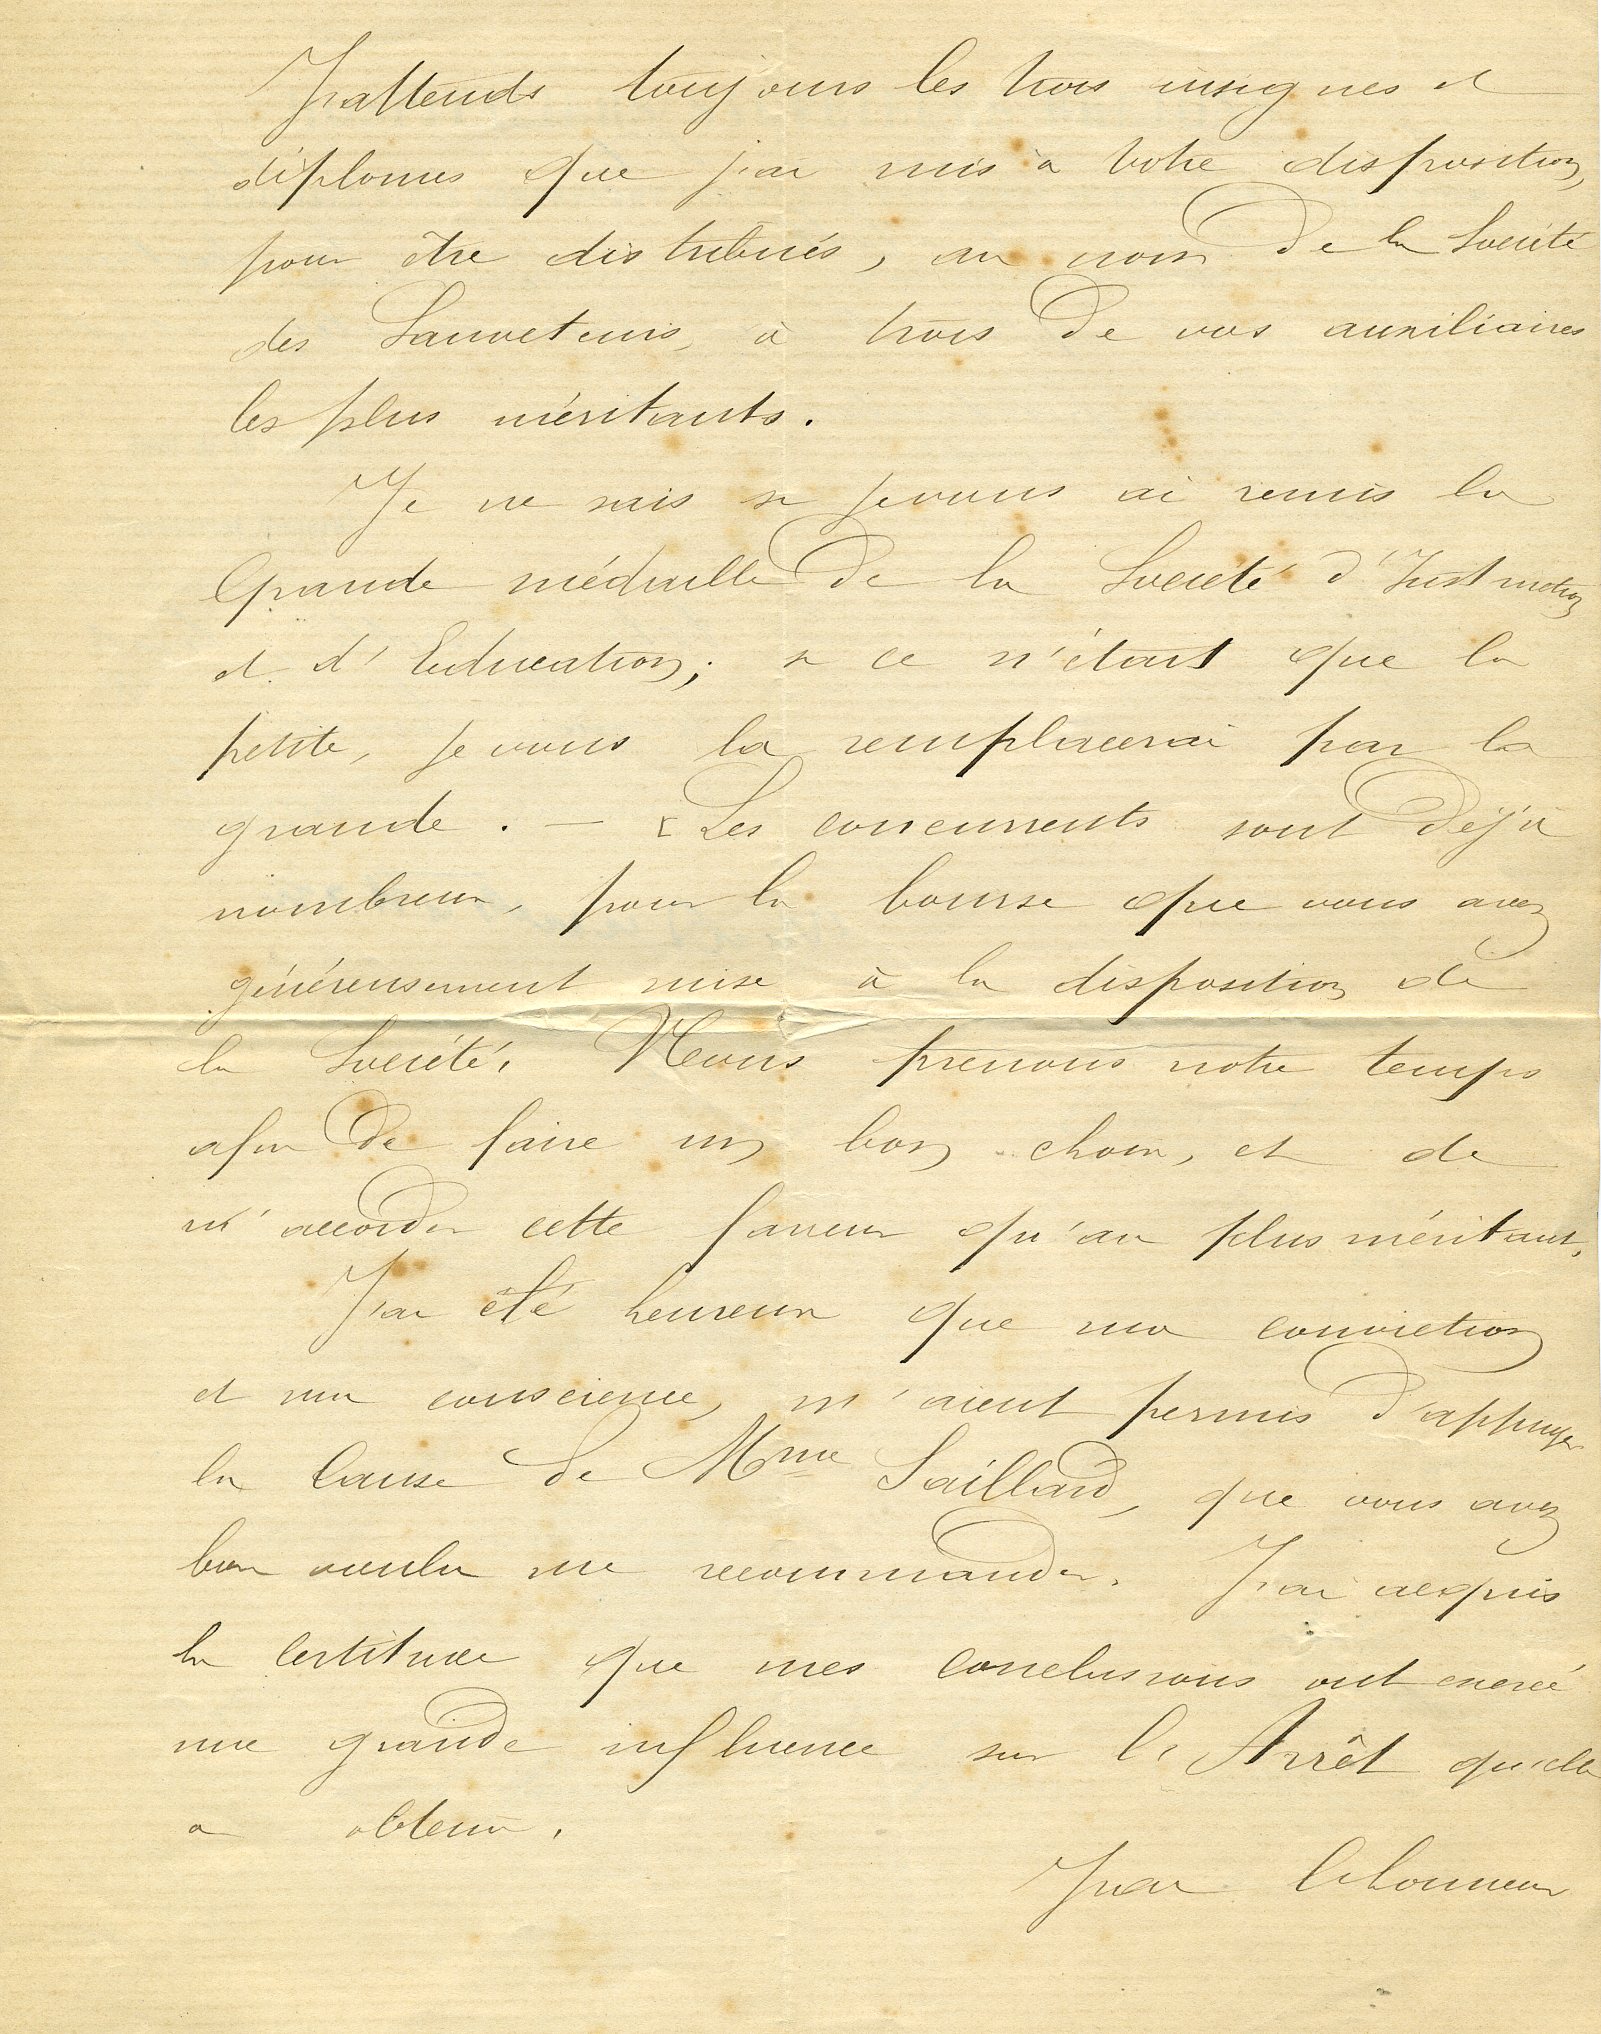 J'attends toujours les trois insignes et
diplomes que j'ai mis à votre disposition,
pour être distribués, au nom de la Société
des Sauveteurs, à trois de vos auxiliaires
les plus méritants.
Je ne sais si je vous ai remis la
Grande médaille de la Société d'Instruction
et d'Education; si ce n'était que la
petite, je vous la remplacerai par la
grande. — [ Les concurrents sont déjà
nombreux, pour la bourse que vous avez
généreusement mise à la disposition de
la Société. Nous prenons notre temps
afin de faire un bon choix, et de
n'accorder cette faveur qu'au plus méritant.
J'ai été heureux que ma conviction
et ma conscience, m'aient permis d'appuyer
la Cause de Mme Saillard, que vous avez
bien voulu me recommander. J'ai acquis
la Certitude que mes Conclusions ont exercé
une grande influence sur l'Arrêt qu'elle
a obtenu.
J'ai l'honneur